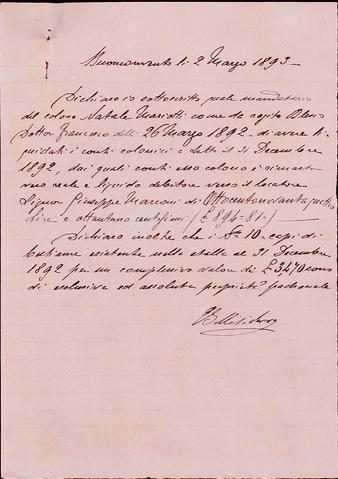 Buonconvento li 2 Marzo 1893 -
Dichiaro io sottoscritto quale mandatario
del colono Natale Mariotti come da rogito
Dottor Francesco delli 26 Marzo 1892 - di avere li=
quidati i conti colonici a tutto il 31 Decembre
1892, dai quali conti esso colono è rimasto
vero reale e liquido debitore verso il locatore
Signor Giuseppe Marconi di Ottocentonovantaquattro
lire e ottantuno centesimi (£ 894-81-)
Dichiaro inoltre che i 10 capi di
bestiame esistente nelle stalle al 31 Decembre
1892 per un complessivo valore di £ 3,470 sono
di esclusiva ed assoluta proprietà padronale